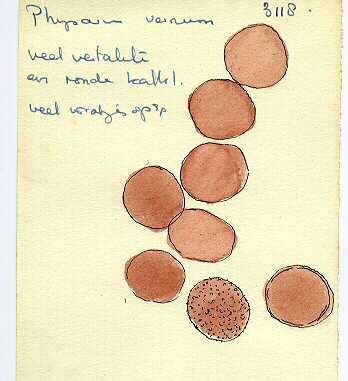 Physarum vernum 3118.
veel vertakte
en ronde kalkl.
veel wratjes op sp